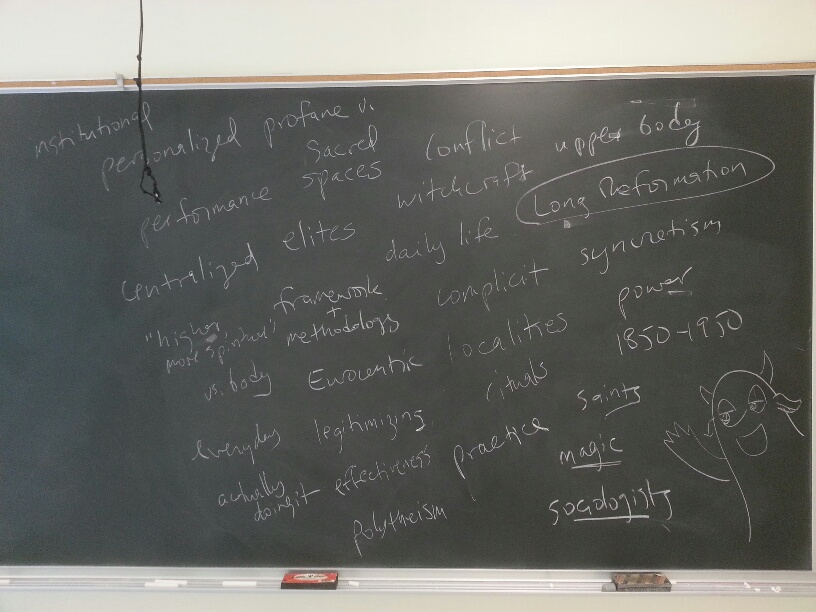 institutional
personalized
profane v.
Sacred
spaces
conflict
upper body
performance
witchcraft
Long Reformation
centralized
elites
daily life
syncretism
"higher,
more spiritual"
vs. body
framework
+
methodology
complicit
power
Eurocentric
localities
1850-1950
everyday
legitimizing
rituals
saints
actually
doing it
effectiveness
practice
magic
polytheism
sociologists